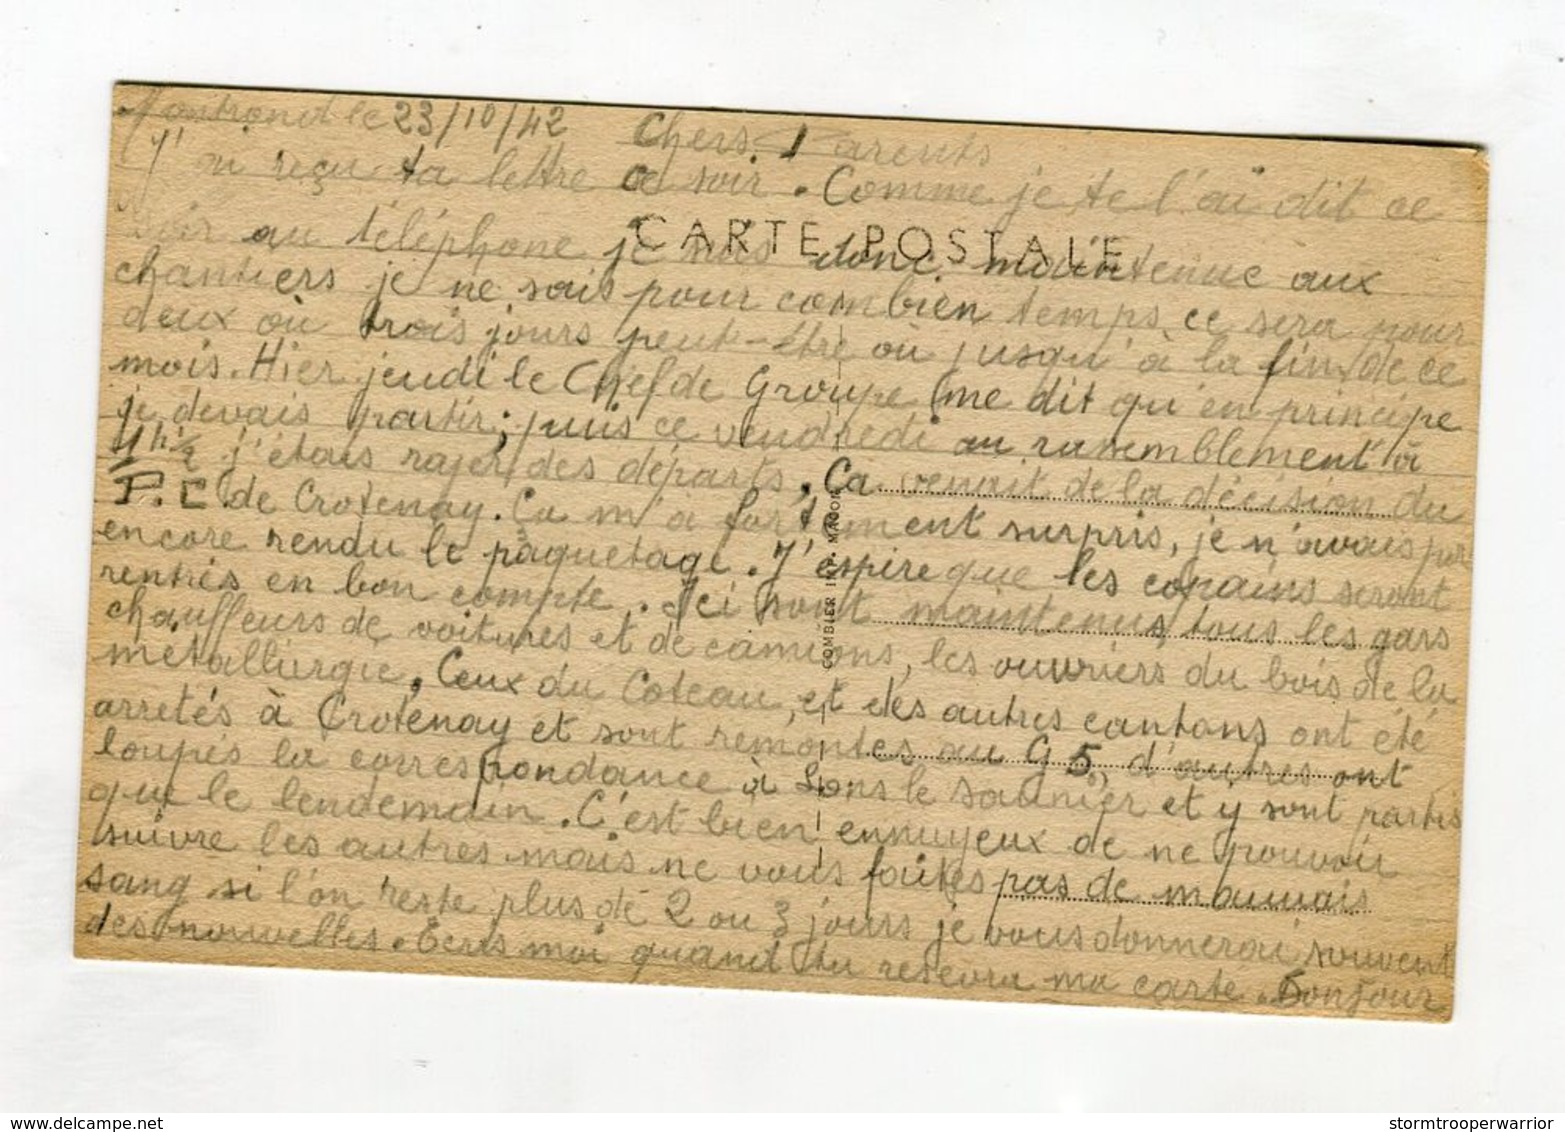 Montrond le 23/10/42 Chers Parents
J'ai reçu ta lettre ce soir. Comme je te l'ai dit ce
CARTE POSTALE
soir au téléphone je suis donc maintenue aux
chantiers je ne sais pour combien temps, ce sera pour
deux où trois jours peut-être où jusqu'à la fin de ce
mois. Hier jeudi le Chef de Groupe me dit qu'en principe
je devais partir; puis ce vendredi au rassemblement à
4h½ j'étais rajer des départs. Ca venait de la décision du
P.C de Crotenay. Ça m'a fortement surpris, je n'avais pas
encore rendu le paquetage. J'espire que les copains seront
rentrés en bon compte. Ici sont maintenus tous les gars
chauffeurs de voitures et de camions, les ouvriers du bois de la
métallurgie. Ceux du Coteau, et des autres cantons ont été
arretés à Crotenay et sont remontés au G 5, d'autres ont
loupés la correspondance à Lons le Saunier et y sont partis
que le lendemain. C'est bien ennuyeux de ne pouvoir
suivre les autres mais ne vous faites pas de mauvais
sang si l'on reste plus de 2 ou 3 jours je vous donnerai souvent
des nouvelles. Ecris moi quand tu resevra ma carte. Bonjour
COMBIER IMP. MACON
stormtrooperwarrior